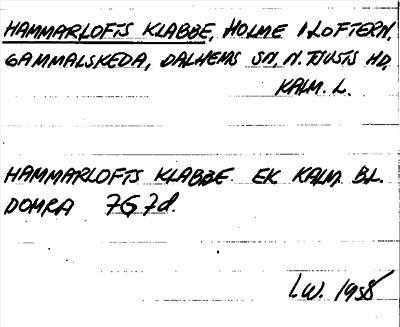 HAMMARLOFTS KLABBE, HOLME I LOFTERN,
GAMMALSKEDA, DALHEMS SN, N. TJUSTS HD,
KALM. L.
HAMMARLOFTS KLABBE EK KALM. BL.
DOMRA 7G7d.
I.W. 1958